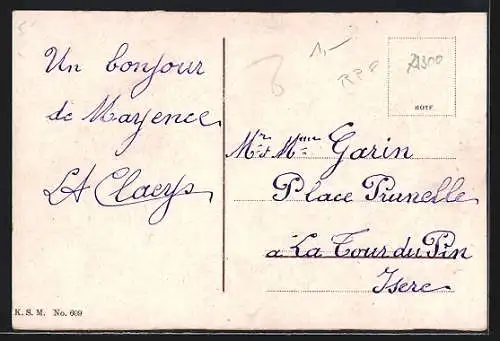 Un bonjour
de Mayence
Claeys
1,-
21300
NOTF.
Mr et Mme Garin
Place Prunelle
a La Tour du Pin
Isere
K. S. M. No. 609